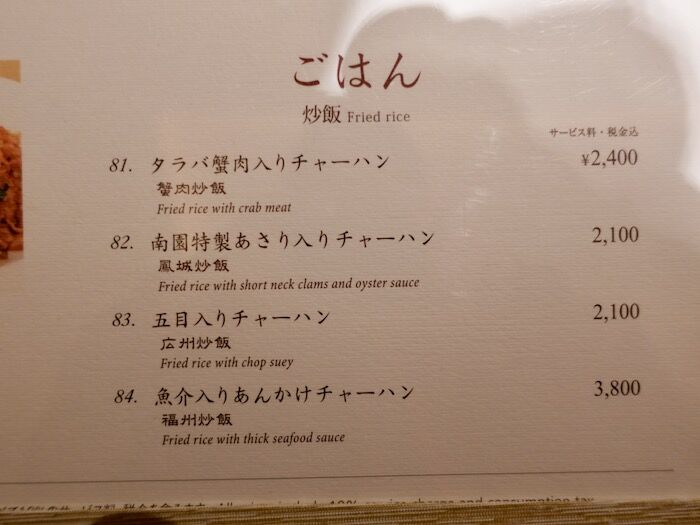 ごはん
炒飯 Fried rice
サービス料・税金込
81. タラバ蟹肉入りチャーハン ¥2,400
蟹肉炒飯
Fried rice with crab meat
82. 南園特製あさり入りチャーハン 2,100
鳳城炒飯
Fried rice with short neck clams and oyster sauce
83. 五目入りチャーハン 2,100
広州炒飯
Fried rice with chop suey
84. 魚介入りあんかけチャーハン 3,800
福州炒飯
Fried rice with thick seafood sauce